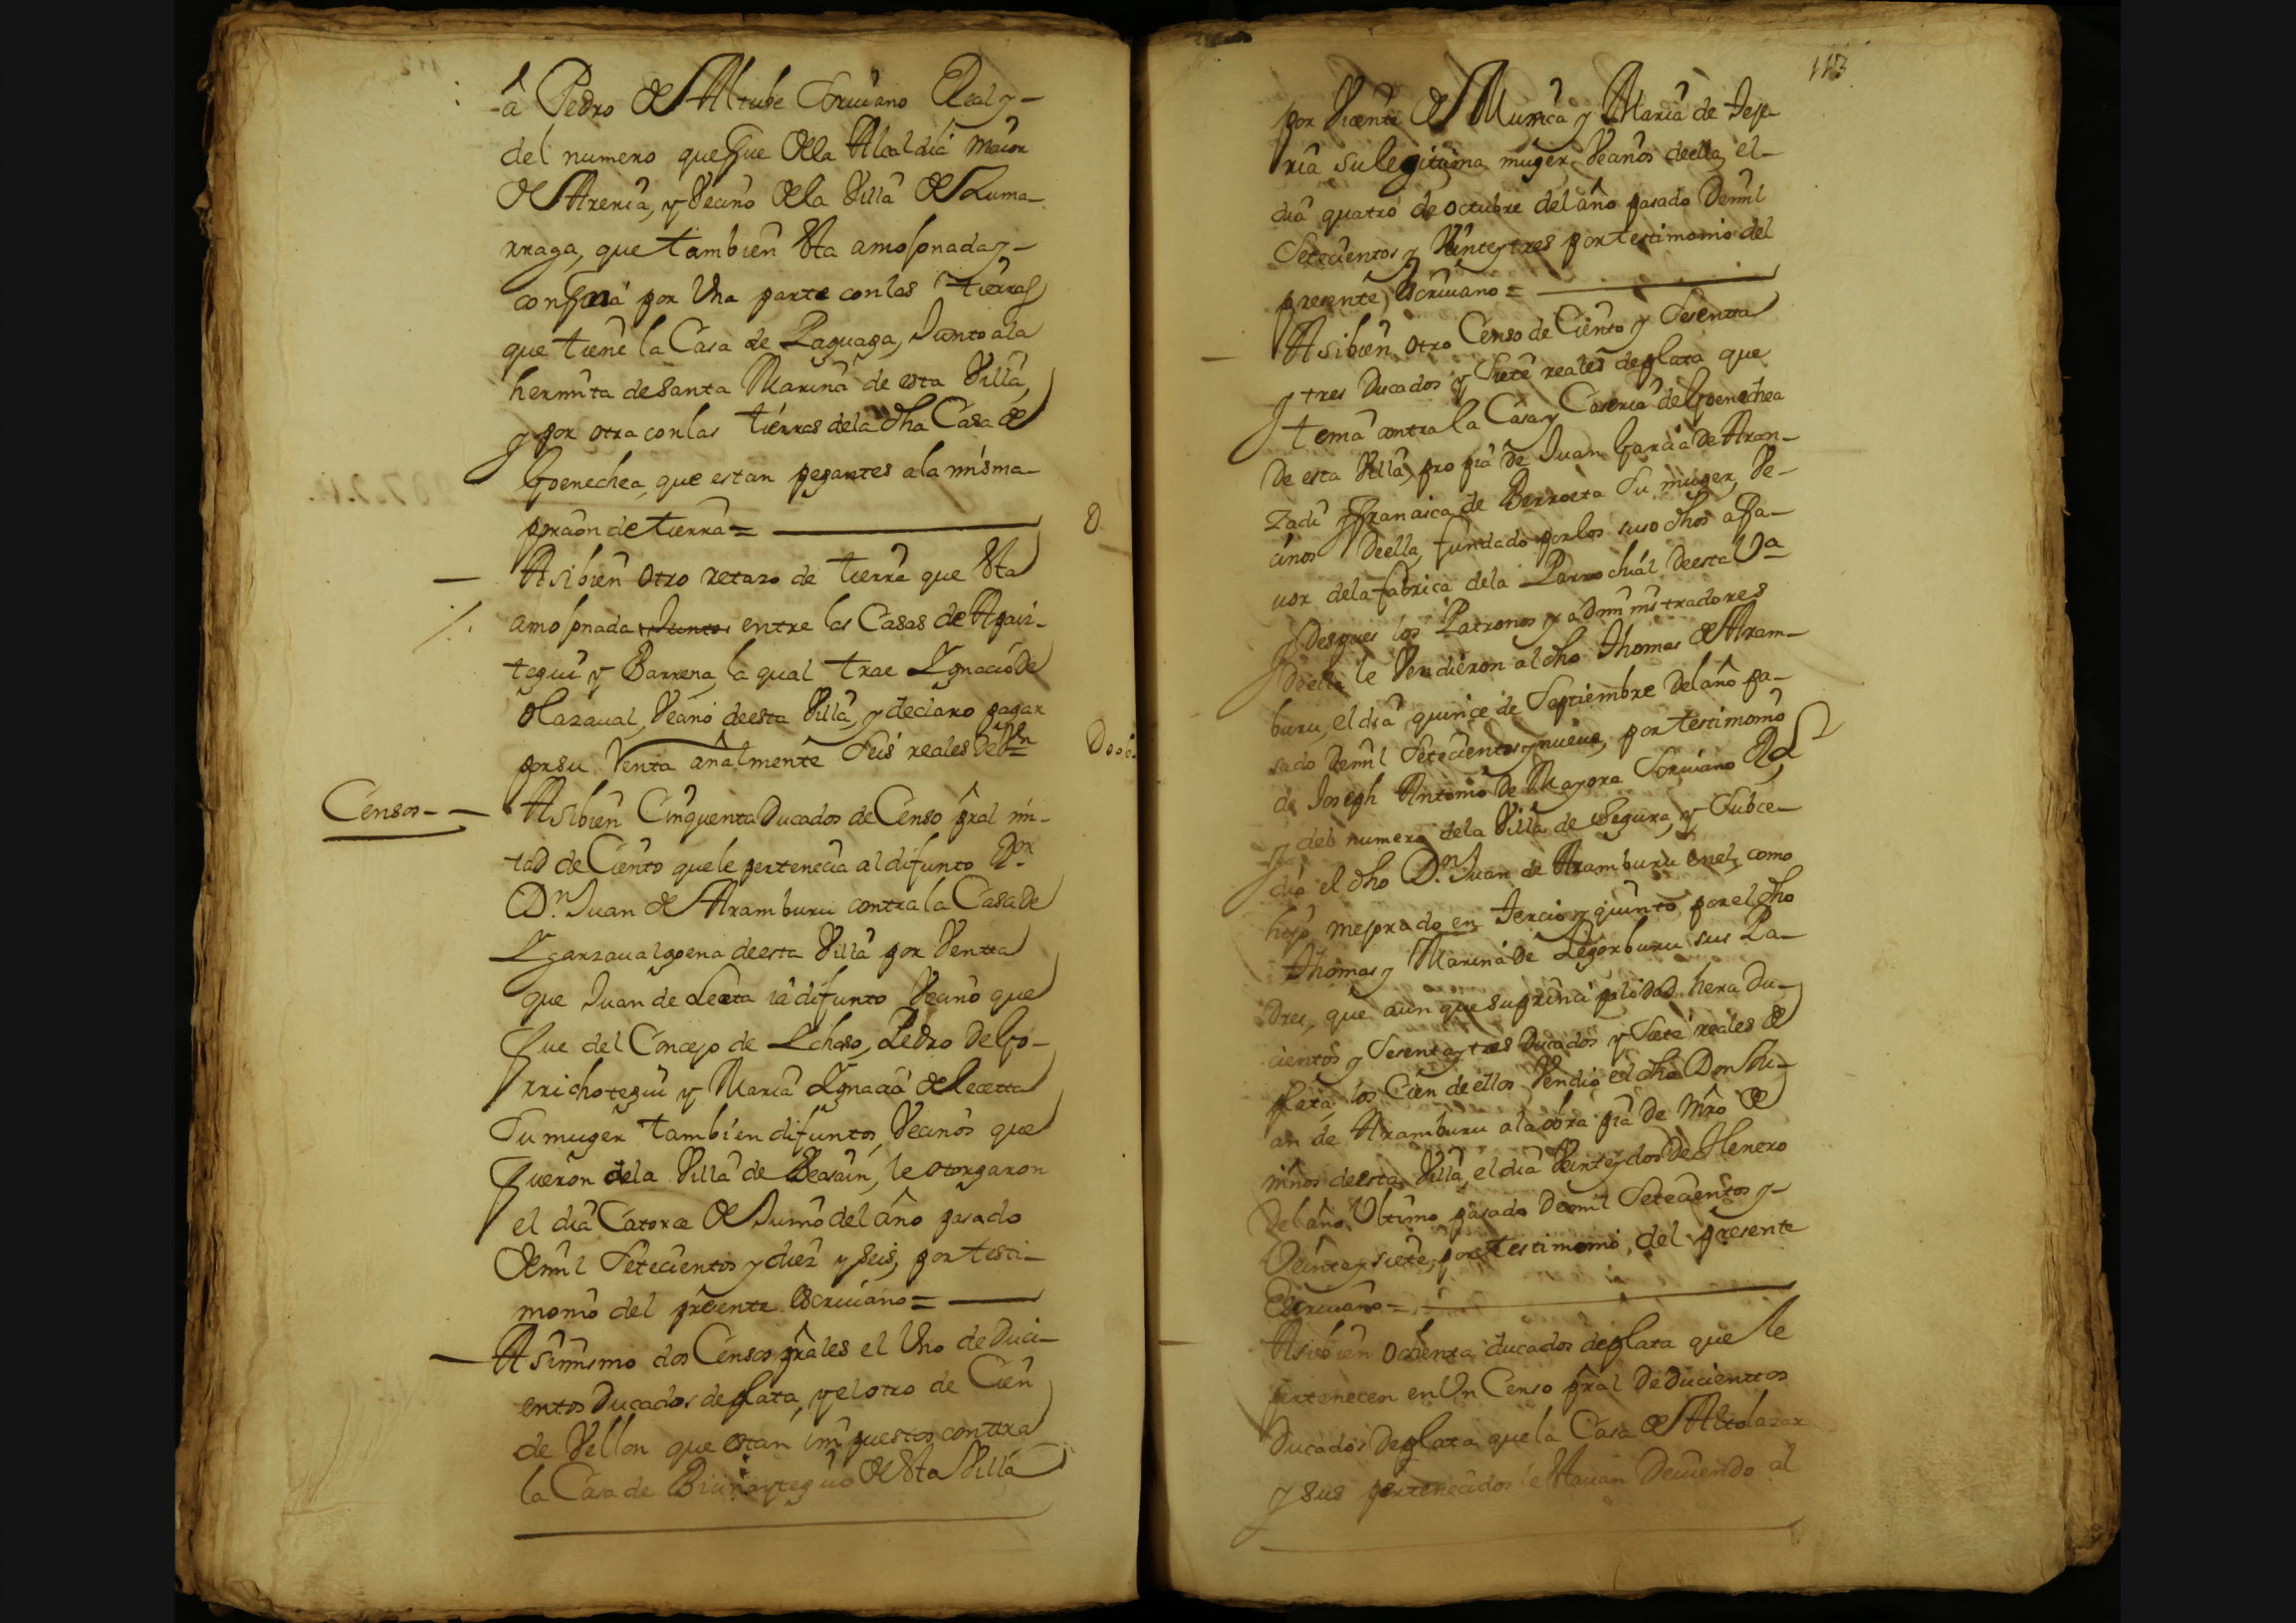 â Pedro de Altube Scriuano Real y
del numero que fue de la Alcaldia maior
de Areria, y Vecino de la Villa de Zuma-
rraga, que tambien esta amojonada, y
confina por Una parte con las tierras
que tiene la Casa de Zaguaga, Junto a la
hermita de Santa Marina de esta Villa,
y por otra con las tierras de la dha Casa de
Goenechea, que estan pegantes a la misma
porcion de tierra =
Asibien Otro retazo de tierra que esta
amojonada entre las Casas de Apaiz-
tegui y Barrena, la qual trae Ygnacio de
Olazaual, Vecino de esta Villa, y declaro pagar
por su Renta añalmente Seis reales de Vn
Censos
Asibien Cinquenta Ducados de Censo pral mi-
tad de Ciento que le pertenecia al difunto
Dn Juan de Aramburu contra la Casa de
Ygarzaualgoena de esta Villa por Ventta
que Juan de Leceta ia difunto Vecino que
fue del Concejo de Ychaso, Pedro de Go-
rrichotegui y Maria Ygnacia de Lecetta
Su muger tambien difuntos, Vecinos que
fueron de la Villa de Beasain, le otorgaron
el dia Catorce de Junio del año pasado
de mil Setecientos y diez y seis, por testi-
monio del presente escriuano =
Asimismo dos Censos prâles el Uno de Duci-
entos Ducados de plata, y el otro de Cien
de Vellon que estan impuestos contra
la Casa de de esta Villa
113
por Vicente de Murica y Maria de Teje-
ria su legitima muger Vecinos de ella, el
dia quatro de octubre del año pasado de mil
Setecientos y Veinte y tres por testimonio del
presente escriuano =
Asibien otro Censo de Ciento y Sesentta
y tres Ducados y Siete reales de plata que
tenia contra la Casa y Caseria de Goenechea
de esta Villa, propia de Juan Garcia de Aran-
zadi y Francisca de Berroeta Su muger, Ve-
cinos de ella, fundado por los suso dhos a fa-
uor de la fabrica de la Parrochial de esta Va
y despues los Patronos y administradores
de ella le Vendieron al dho Thomas de Aram-
buru, el dia quince de Septiembre del año pa-
sado de mil Setecientos y nueue, por testimonio
de Joseph Antonio de Mayora Scriuano Rl
y del numero de la Villa de Segura, y Subce-
dio el dho Dn Juan de Aramburu en el, como
hijo mejorado en Tercio y quinto, por el dho
Thomas y Marina de Legorburu sus Pa-
dres, que aun que su principalidad hera Du-
cientos y Sesenta y tres Ducados y Siete reales de
plata, los Cien de ellos Vendio el dho Don Ju-
an de Aramburu a la obra pia de Mro de
niños de esta Villa, el dia Veinte y dos de Henero
del año Ultimo pasado de mil Setecientos y
Veinte y siete, por testimonio del presente
Escriuano =
Asibien ochenta ducados de plata que le
pertenecen en Un Censo pral de Ducienttos
Ducados de plata que la Casa de Altolazar
y sus pertenecidos le estauan deuiendo al